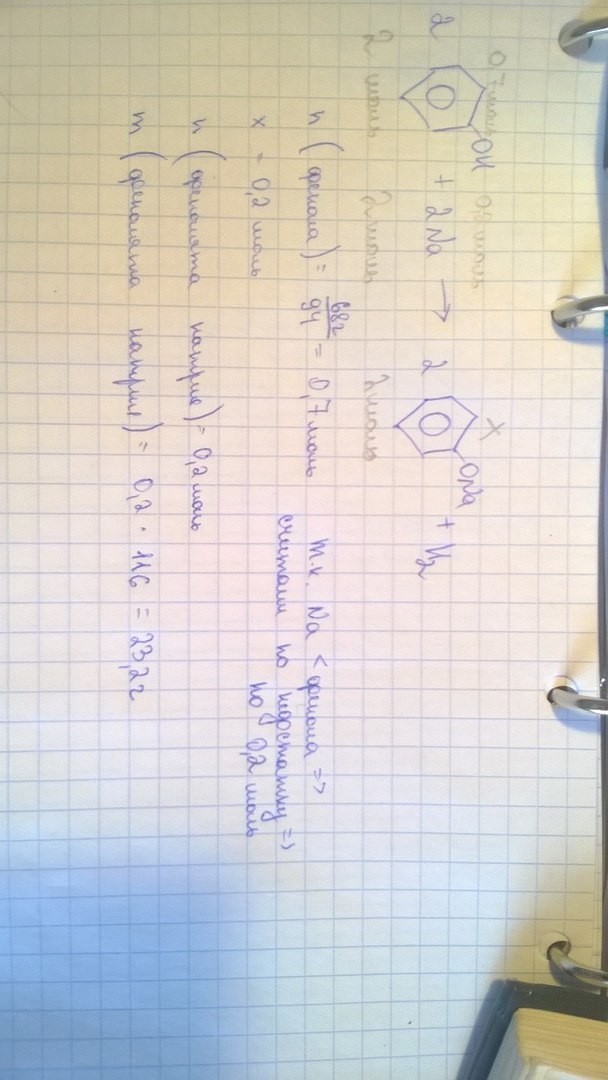 0,7моль 0,2 моль x
2 OH + 2Na → 2 ONa + H₂
2 моль 2моль 2моль
n (фенола) = 68г/94 = 0,7 моль
т.к. Na < фенола =>
считали по недостатку =>
по 0,2 моль
x = 0,2 моль
n (фенолята натрия) = 0,2 моль
m (фенолята натрия) = 0,2 · 116 = 23,2 г